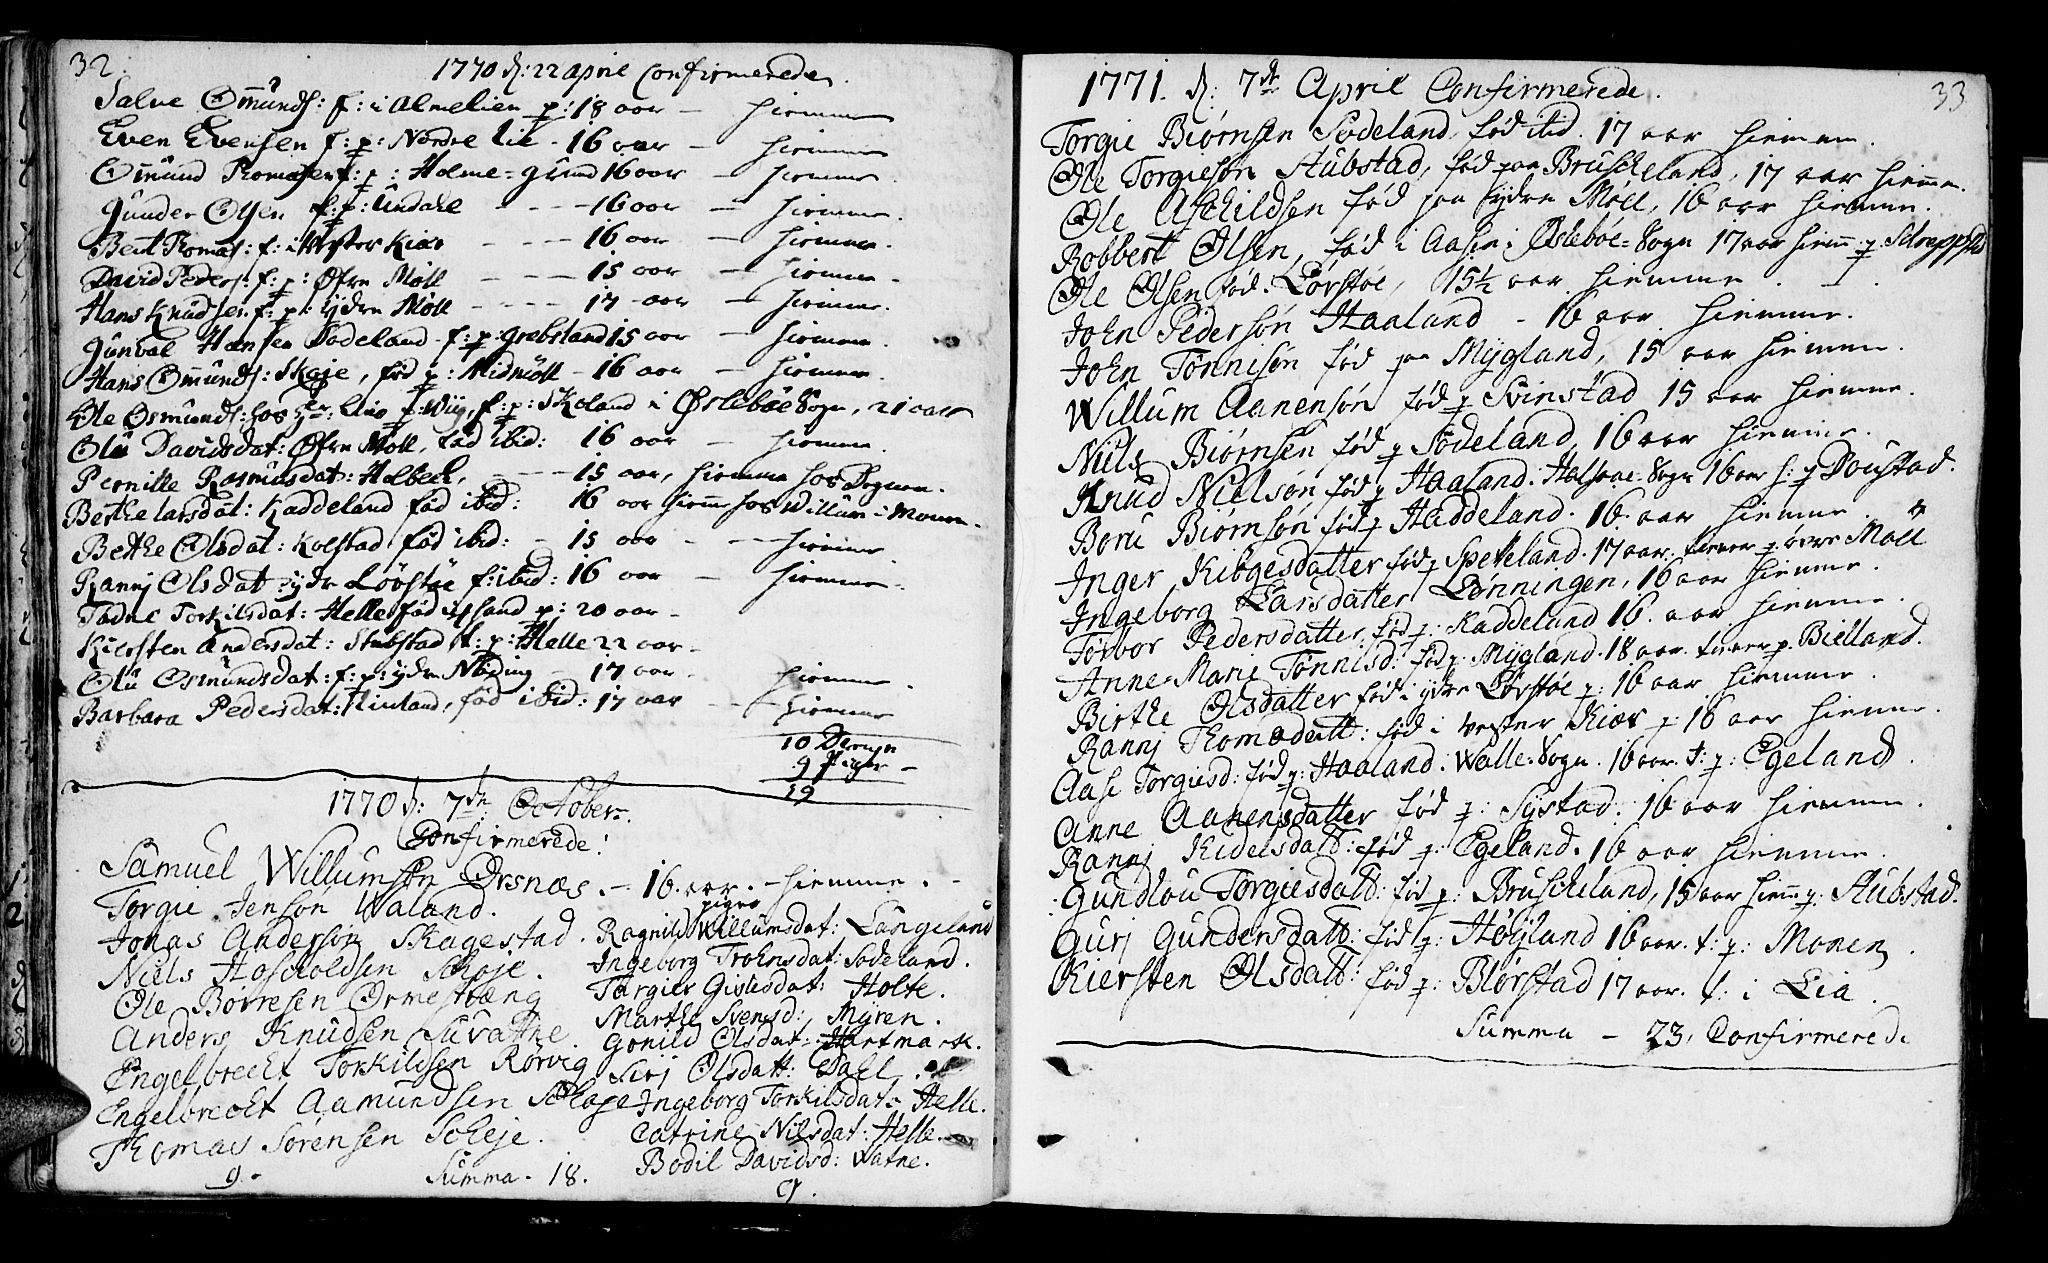 32.
1770 d: 22 april Confirmerede.
Salve Omunds: f: i Almelien p: 18 aar — hiemme
Even Evensen f: p: Nordre Lie - 16 aar — hiemme
Omund Thomasen f: p: Holme=grund 16 aar — hiemme
Gunder Olsen f: p: Undahl - - - - 16 aar — hiemme.
Bent Thomas: f: i Wester Kiær - - - 16 aar — hiemme.
David Peders: f: p: Øfre Møll - - - 15 aar — hiemme
Hans Knudsen f: p: ydre Møll - - - - 17 - aar — hiemme.
Gunval Hansen Sodeland f: p: Grebsland 15 aar — hiemme.
Hans Omunds: Skaje, fød p: Midmöll - 16 aar — hiemme.
Ole Osmunds: hos Hr: Wiig, f: p: Skoland i Øslebøe Sogn, 21 aar
Olu Davidsdat: Øfre Möll, fød ibid: 16 aar — hiemme
Pernille Rasmusdat: Holbeck, - - - 15 aar, hiemme hos Dognen.
Berthe Larsdat: Kaddeland fød ibid: 16 aar hiem hos Willum i Monen.
Berthe Olsdat: Kolstad fød ibid: - 15 aar - - hiemme
Rannj Olsdat: ydre Lövstöe f: ibid: 16 aar — hiemme.
Tadne Torkilsdat: Helle fød i p: 20 aar -
Kiersten Andersdat: Stubstad f: p: Helle 22 aar -
Olu Osmundsdat: f: p: ydre Nöding - 17 aar - hiemme.
Barbara Pedersdat: Kinland, fød ibid: 17 aar - - hiemme
10 Drenge
9 Piger -
19
1770 d: 7de October.
Confirmerede:
Samuel Willumsön Örsnæs. - 16. aar. - hiemme. -
Torgie Jensön Waland.
Jonas Andersön Skagestad.
Niels Hoscholdsen Scheje.
Ole Börresen Ormestræng
Anders Knudsen Suvathne.
Engelbrecht Torkildsen Rörvig
Engelbrecht Aamundsen Schage
Thomas Sörensen Scheje.
9. -
piger
Ragnild Willumsdat: Langeland
Ingeborg Trohnsdat: Sodeland.
Targier Gislesdat: Holte.
Marthe Svensd: Myren.
Gonild Olsdat: Hartmark.
Sirj Olsdatt: Dahl.
Ingeborg Torkilsdat: Helle.
Catrine Nilsdat: Helle.
Bodil Davidsd: Watne.
9.
Summa. 18.
33
1771. d: 7de April Confirmerede.
Torgie Biörnsen Sodeland, fød ibid. 17 aar hiemme.
Ole Torgiesön Stubstad, fød paa Bruscheland, 17 aar hiemme.
Ole Aschildsen fød paa Sydre Möll, 16 aar hiemme.
Robbert Olsen, fød i Aasen i Öslebøe=Sogn 17 aar hiem: p:
Ole Olsen fød. Lörstöe, 15½ aar hiemme.
John Pedersön Haaland - 16 aar hiemme.
John Tönnisön fød paa Mygland, 15 aar hiemme.
Willum Aanensön fød p Svinstad 15 aar hiemme.
Niels Biörnsen fød p Södeland, 16 aar hiemme.
Knud Nielsön fød p Haaland. Halsaae=Sogn 16 aar f: p Doustad.
Boru Biörnsön fød p Haddeland. 16. aar hiemme.
Inger Kibgesdatter fød p Speteland. 17 aar. tiener p. övre Möll
Ingeborg Larsdatter Lönningen, 16 aar hiemme.
Torbor Pedersdatter fød p: Kaddeland 16. aar hiemme.
Anne=Marie Tönnisd: fød p: Mygland. 18 aar. tiener p. Bielland.
Birthe Olsdatter fød i ydre Lörstöe p: 16 aar hiemme.
Rannj Thomsdatt: fød i vester Kiær p: 16 aar hiemme.
Aase Torgiesd: fød p: Haaland. Walle=Sogn. 16 aar. t: p: Egeland.
Anne Aanensdatter fød p: Systad: 16 aar hiemme.
Rannj Kidelsdatt: fød p: Egeland. 16 aar hiemme.
Gundlou Torgiesdatt: fød p: Bruscheland, 15 aar hiem: p: Stubstad.
Gurj Gundersdatt: fød p: Höyland 16 aar. t: p: Monen.
Kiersten Olsdatt: fød p: Blörstad 17 aar. t: i Lia.
Summa - 23, Confirmerede